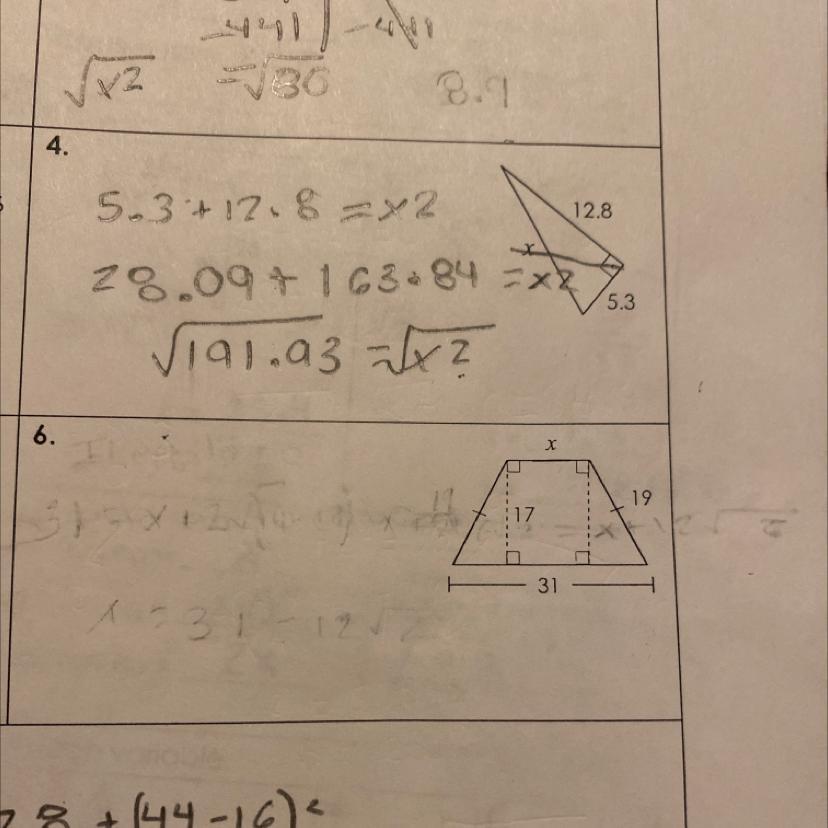 -441 | -441
√x2 = √80 8.9
4.
5.3 + 12.8 = x2
12.8
x
28.09 + 163.84 = x2
5.3
√191.93 = √x2
6.
x
17
19
31
x = 31 - 12√2
28 + (44 - 16)²